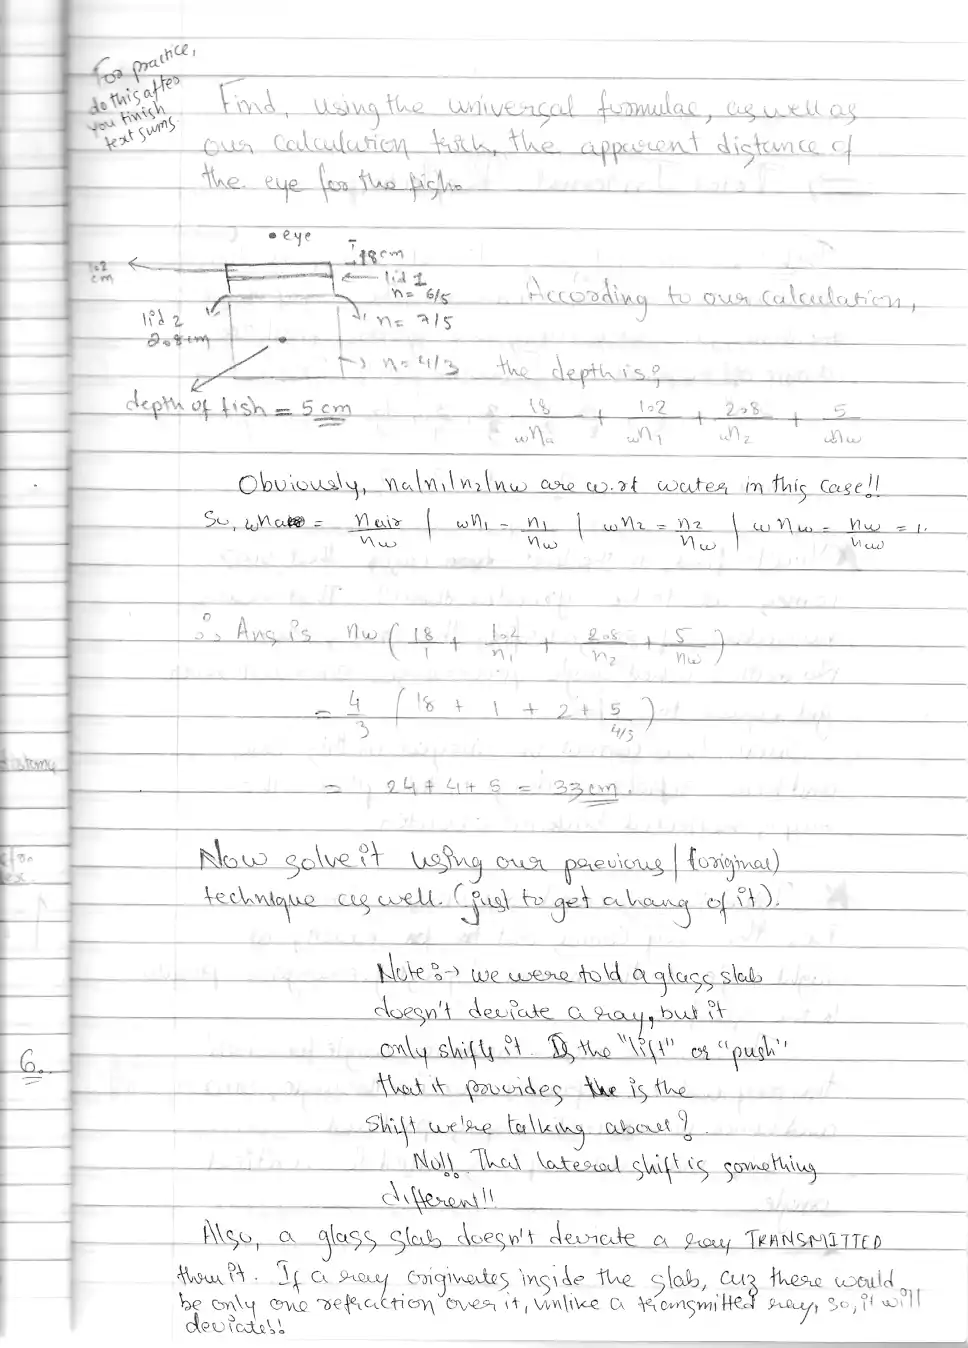 For practice,
do this after
you finish
text sums.
Find, using the universal formulae, as well as
our calculation trick, the apparent distance of
the eye for the fish.
• eye
18cm
1.2
cm
lid 1
n= 6/5
According to our calculation,
lid 2
2.8cm
n= 7/5
n= 4/3
the depth is:
depth of fish = 5 cm
18/wna + 1.2/wn1 + 2.8/wn2 + 5/wnw
Obviously, na/n1/n2/nw are w.rt water in this case!!
So, wna = nair/nw | wn1 = n1/nw | wn2 = n2/nw | wnw = nw/nw = 1.
∴ Ans is nw (18/1 + 1.2/n1 + 2.8/n2 + 5/nw)
= 4/3 (18 + 1 + 2 + 5/4/3)
= 24 + 4 + 5 = 33 cm.
Now solve it using our previous/(original)
technique as well. (just to get a hang of it).
Note:→ we were told a glass slab
doesn't deviate a ray, but it
only shifts it. Is the "lift" or "push"
that it provides the is the
shift we're talking about?
6.
No!! That lateral shift is something
different!!
Also, a glass slab doesn't deviate a ray TRANSMITTED
thru it. If a ray originates inside the slab, cuz there would
be only one refraction over it, unlike a transmitted ray, so, it will
deviate!!